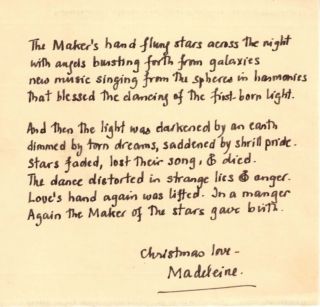 The Maker's hand flung stars across the night
with angels bursting forth from galaxies
new music singing from the spheres in harmonies
that blessed the dancing of the first-born light.
And then the light was darkened by an earth
dimmed by torn dreams, saddened by shrill pride.
Stars faded, lost their song, & died.
The dance distorted in strange lies & anger.
Love's hand again was lifted. In a manger
Again the Maker of the stars gave birth.
Christmas love -
Madeleine.